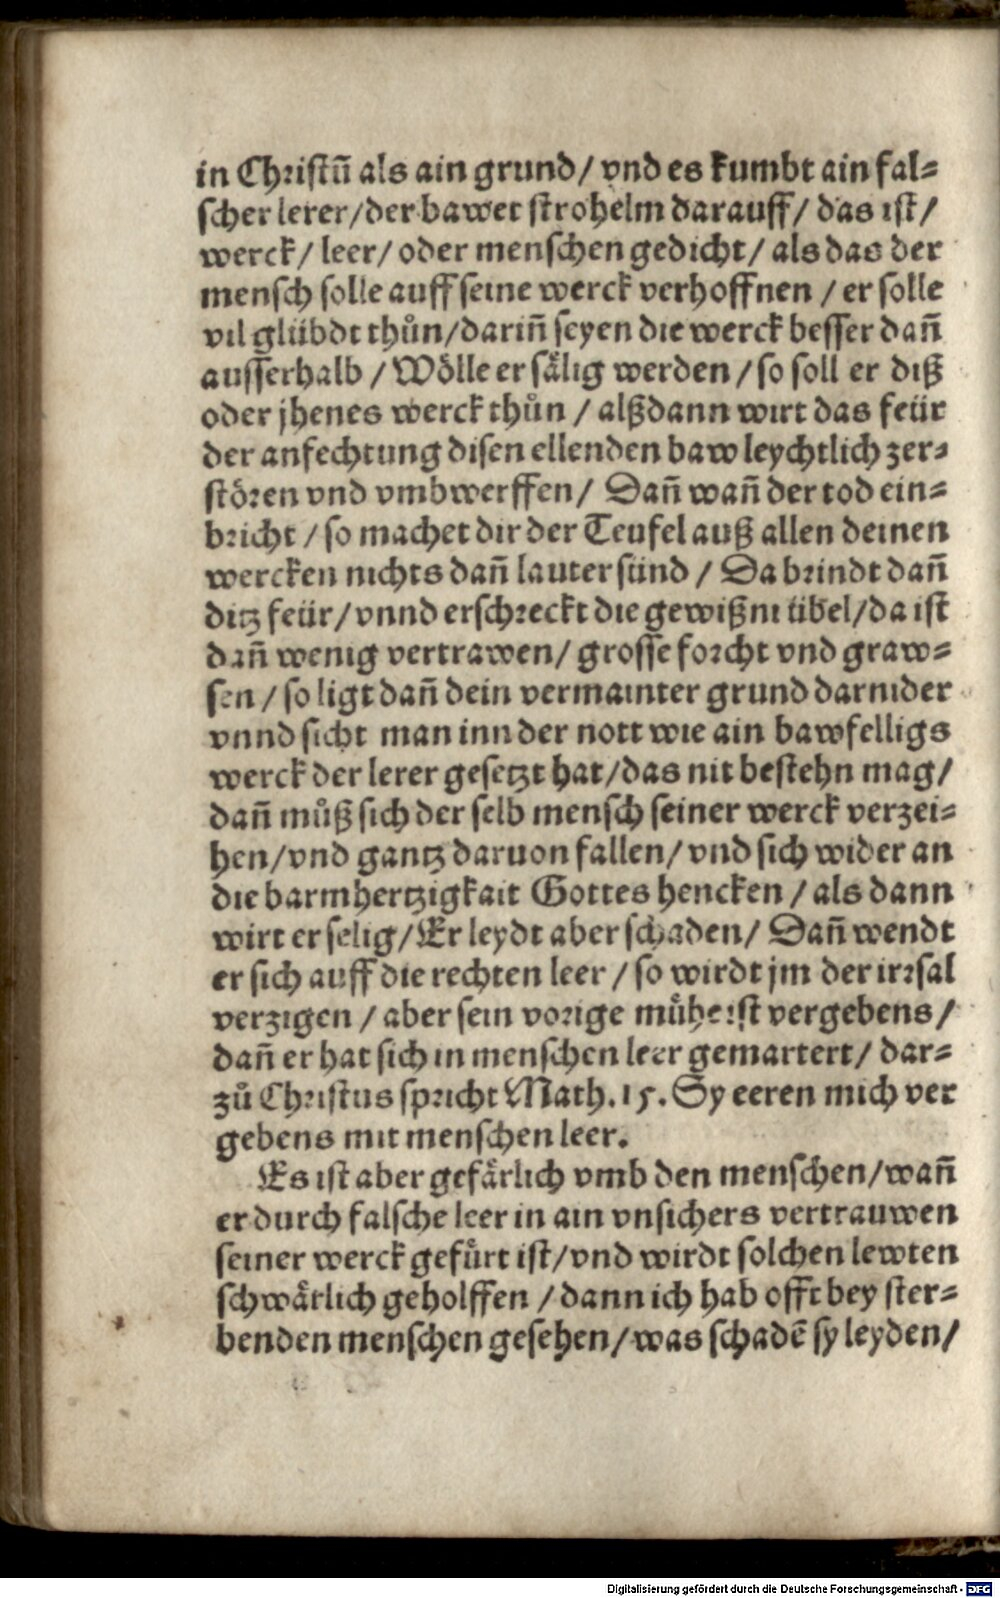 in Chriſtū als ain grund/ vnd es kumbt ain fal⸗
ſcher lerer/der bawet ſtrohelm darauff/ das iſt/
werck/ leer/ oder menſchen gedicht/ als das der
menſch ſolle auff ſeine werck verhoffnen / er ſolle
vil glübdt thůn/dariñ ſeyen die werck beſſer dañ
auſſerhalb / Wölle er ſälig werden / ſo ſoll er diß
oder jhenes werck thůn / alßdann wirt das feür
der anfechtung diſen ellenden baw leychtlich zer⸗
ſtören vnd vmbwerffen/ Dañ wañ der tod ein⸗
bricht / ſo machet dir der Teufel auß allen deinen
wercken nichts dañ lauter ſünd / Da brindt dañ
ditz feür/ vnnd erſchreckt die gewißni übel/da iſt
dañ wenig vertrawen/ groſſe forcht vnd graw⸗
ſen / ſo ligt dañ dein vermainter grund darnider
vnnd ſicht man inn der nott wie ain bawfelligs
werck der lerer geſetzt hat/das nit beſtehn mag/
dañ můß ſich der ſelb menſch ſeiner werck verzei⸗
hen/vnd gantz daruon fallen/ vnd ſich wider an
die barmhertzigkait Gottes hencken / als dann
wirt er ſelig/Er leydt aber ſchaden/ Dañ wendt
er ſich auff die rechten leer / ſo wirdt jm der irrſal
verzigen / aber ſein vorige mühe iſt vergebens/
dañ er hat ſich in menſchen leer gemartert/ dar⸗
zů Chriſtus ſpricht Math. 15. Sy eeren mich ver
gebens mit menſchen leer.
Es iſt aber gefärlich vmb den menſchen/wañ
er durch falſche leer in ain vnſichers vertrauwen
ſeiner werck gefürt iſt/vnd wirdt ſolchen lewten
ſchwärlich geholffen / dann ich hab offt bey ſter⸗
benden menſchen geſehen/ was ſchadē ſy leyden/
Digitalisierung gefördert durch die Deutsche Forschungsgemeinschaft - DFG